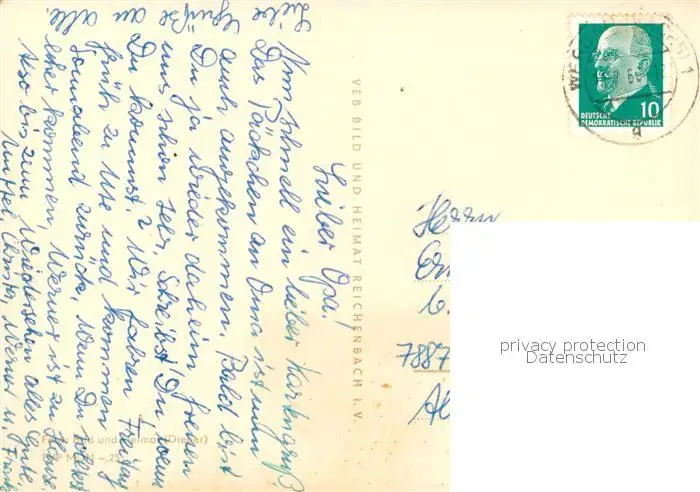 Lieber Opa!
Nun schnell ein lieber Kartengruß.
Das Päckchen an Oma ist nun
auch angekommen. Bald bist
Du ja wieder daheim, freuen
uns schon sehr. Schreibst Du wenn
Du kommst? Wir fahren Freitag
früh zu Ute und kommen
Sonnabend zurück, wenn Du willst
eher kommen, Werner ist zu Hause
Also bis zum Wiedersehen alles Gute,
Mutter, Werner u. Frank
Liebe
Grüße
an
alle.
VEB BILD UND HEIMAT REICHENBACH i. V.
Foto: Bild und Heimat
10
DEUTSCHE
DEMOKRATISCHE REPUBLIK
Herrn
7887
privacy protection
Datenschutz